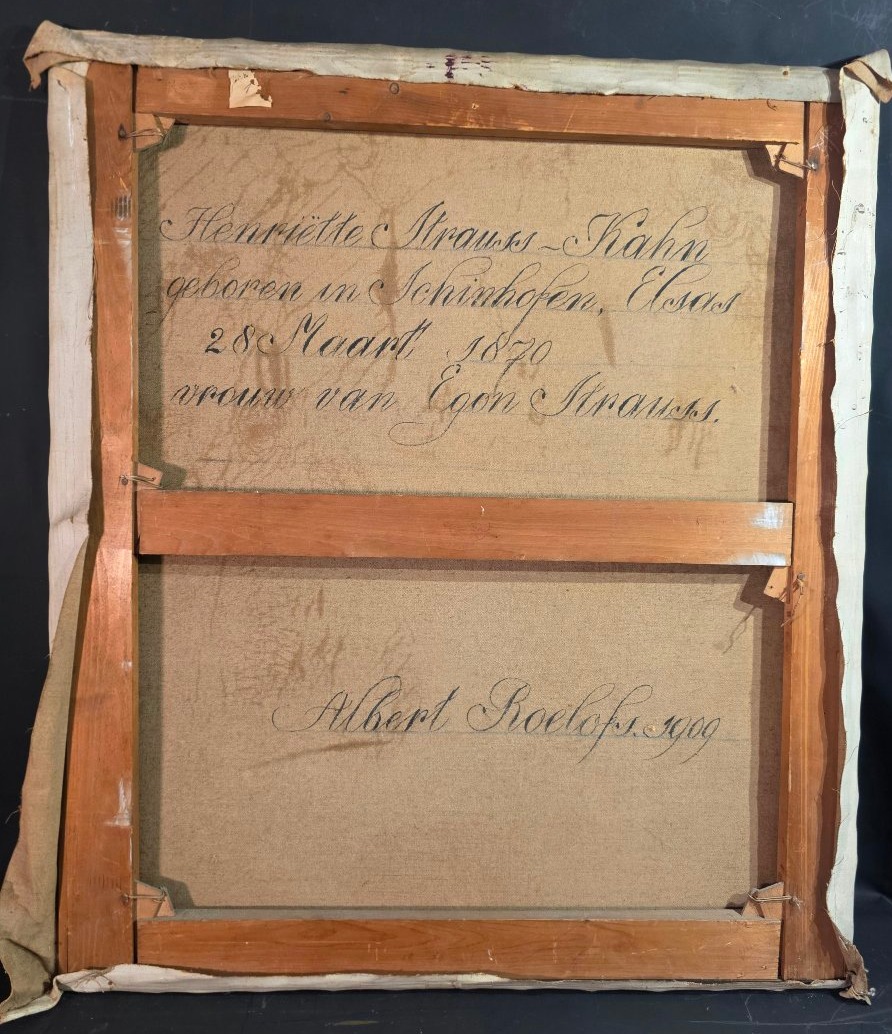 Henriëtte Strauss-Kahn
geboren in Schirrhofen, Elsas
28 Maart 1870
vrouw van Egon Strauss.
Albert Roelofs. 1909